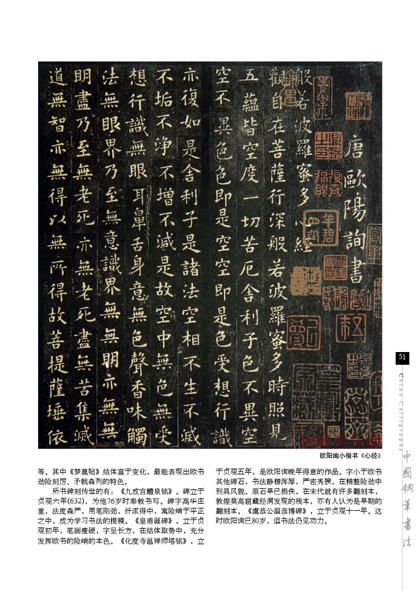 唐歐陽詢書
般若波羅蜜多心經
觀自在菩薩行深般若波羅蜜多時照見
五蘊皆空度一切苦厄舍利子色不異空
空不異色色即是空空即是色受想行識
亦復如是舍利子是諸法空相不生不滅
不垢不淨不增不減是故空中無色無受
想行識無眼耳鼻舌身意無色聲香味觸
法無眼界乃至無意識界無無明亦無無
明盡乃至無老死亦無老死盡無苦集滅
道無智亦無得以無所得故菩提薩埵依
欧阳询小楷书《心经》
等,其中《梦奠帖》结体富于变化,最能表现出欧书
劲险刻厉、矛戟森列的特色。
所书碑刻传世的有:《九成宫醴泉铭》。碑立于
贞观六年(632),为他76岁时奉敕书写。碑字高华庄
重,法度森严,用笔刚劲,纤浓得中,寓险峭于平正
之中,成为学习书法的楷模。《皇甫诞碑》,立于贞
观初年,笔画瘦硬,字呈长方,在结体取势中,充分
发挥欧书的险峭的本色。《化度寺邕禅师塔铭》,立
于贞观五年,是欧阳询晚年得意的作品。字小于欧书
其他碑石,书法静穆浑厚,严密秀腴,在精整险劲中
别具风貌。原石早已损佚,在宋代就有许多翻刻本,
敦煌莫高窟藏经洞发现的残本,亦有人认为是早期的
翻刻本。《虞恭公温彦博碑》,立于贞观十一年。这
时欧阳询已80岁,但书法仍见功力。
51
Chinese Calligraphy
中國鋼筆書法